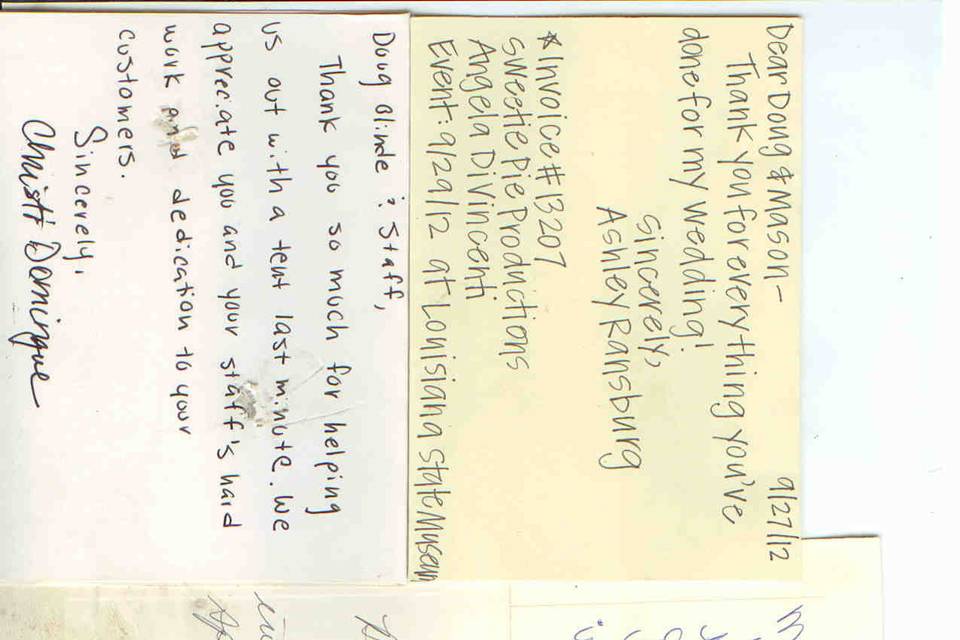 Dear Doug & Mason- 9/27/12
Thank you for everything you've
done for my wedding!
Sincerely,
Ashley Ransburg
*Invoice #13207
Sweetie Pie Productions
Angela DiVincenti
Event: 9/29/12 at Louisiana State Museum
Doug Olinde & Staff,
Thank you so much for helping
us out with a tent last minute. We
appreciate you and your staff's hard
work and dedication to your
customers.
Sincerely,
Christi Domingue